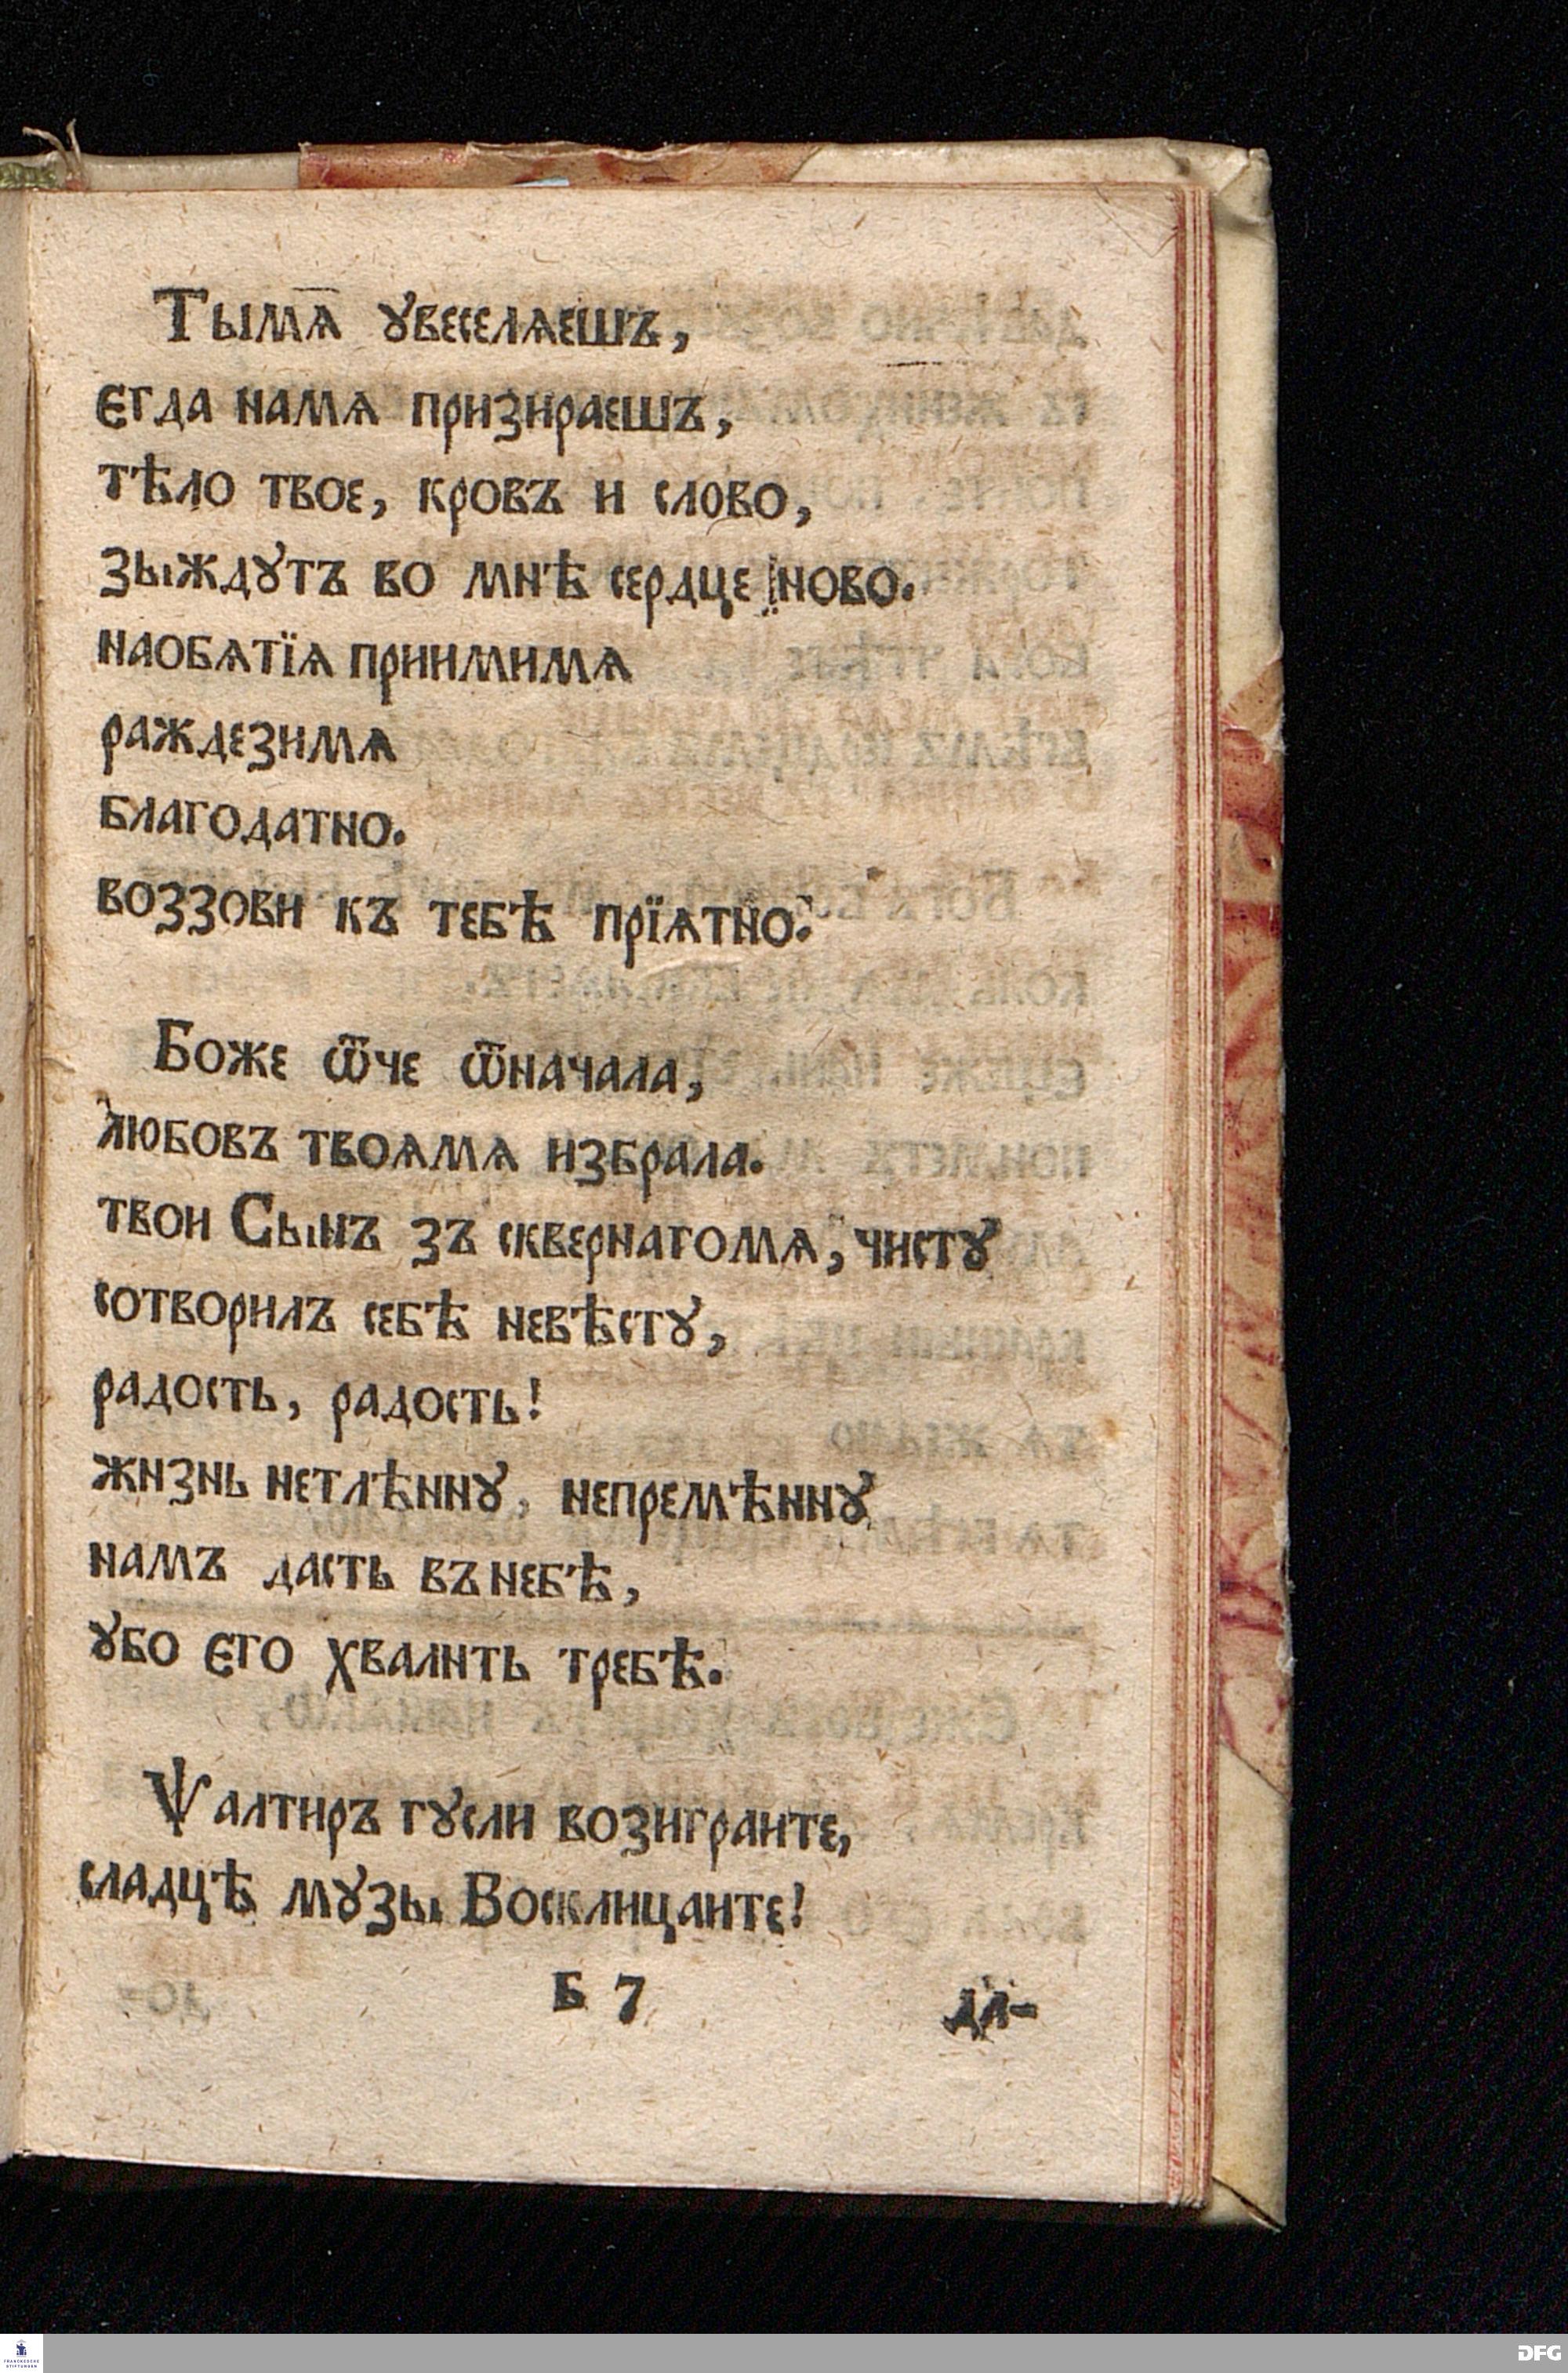 Тымѧ ꙋвеселѧешъ,
єгда намѧ призираешъ,
тѣло твое, кровъ и слово,
зыждꙋтъ во мнѣ сердце ново.
наобѧтїѧ приимимѧ
раждезимѧ
благодатно.
воззови къ тебѣ прїѧтно:
Боже ѿче ѿначала,
любовъ твоѧмѧ избрала.
твои Сынъ зъ сквернагомѧ, чистꙋ
сотворилъ себѣ невѣстꙋ,
радость, радость!
жизнь нетлѣннꙋ, непремѣннꙋ
намъ дасть въ небѣ,
ꙋбо єго хвалить требѣ.
Ѱалтиръ гꙋсли возиграите,
сладцѣ мꙋзы Восклицаите!
Б 7
да-
FRANCKESCHE
STIFTUNGEN
DFG